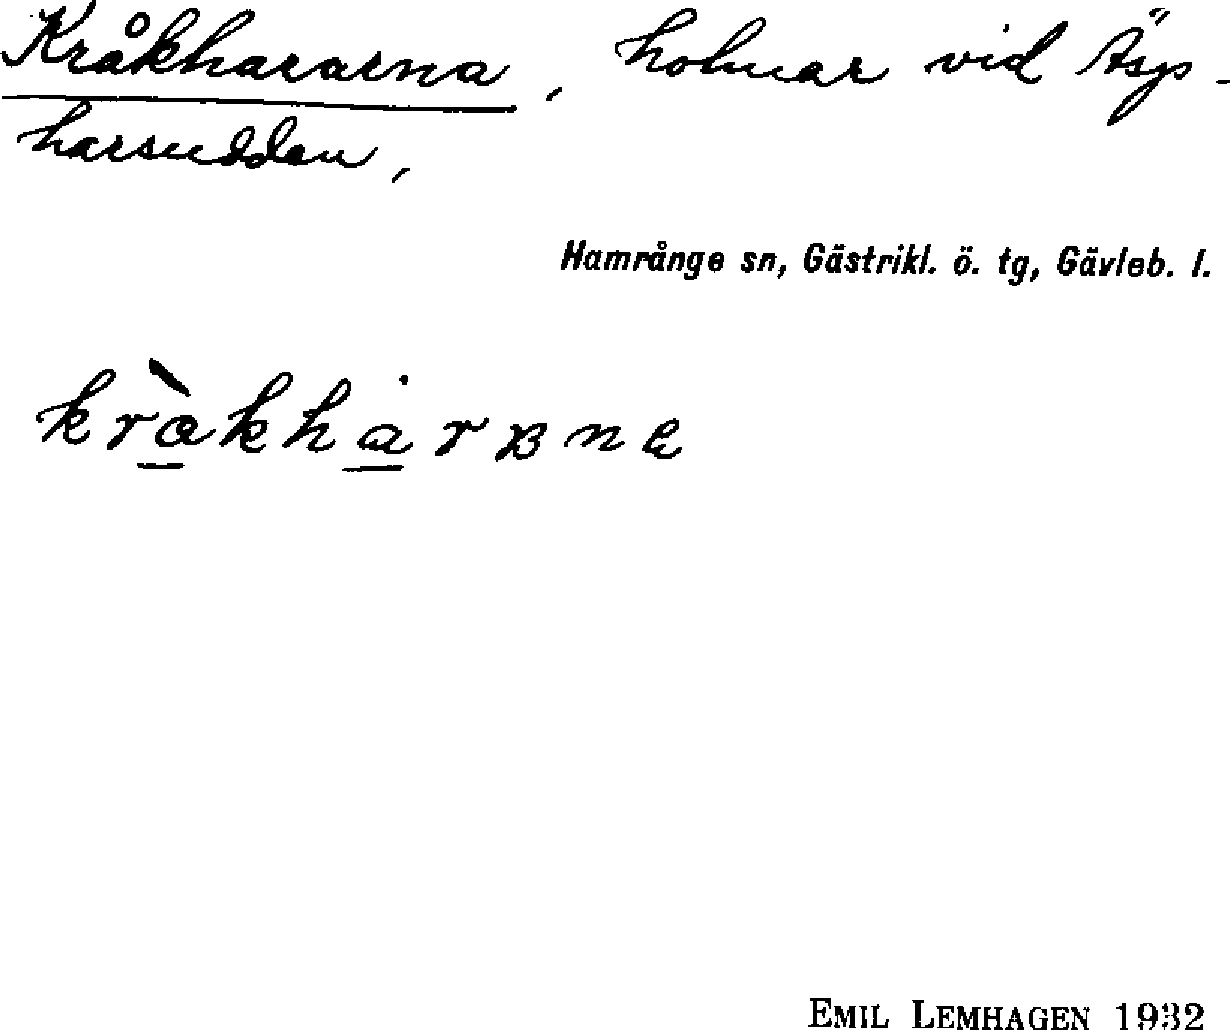 Kråkhararna, holmar vid Äsp-
harsudden,
Hamrånge sn, Gästrikl. ö. tg, Gävleb. l.
EMIL LEMHAGEN 1932